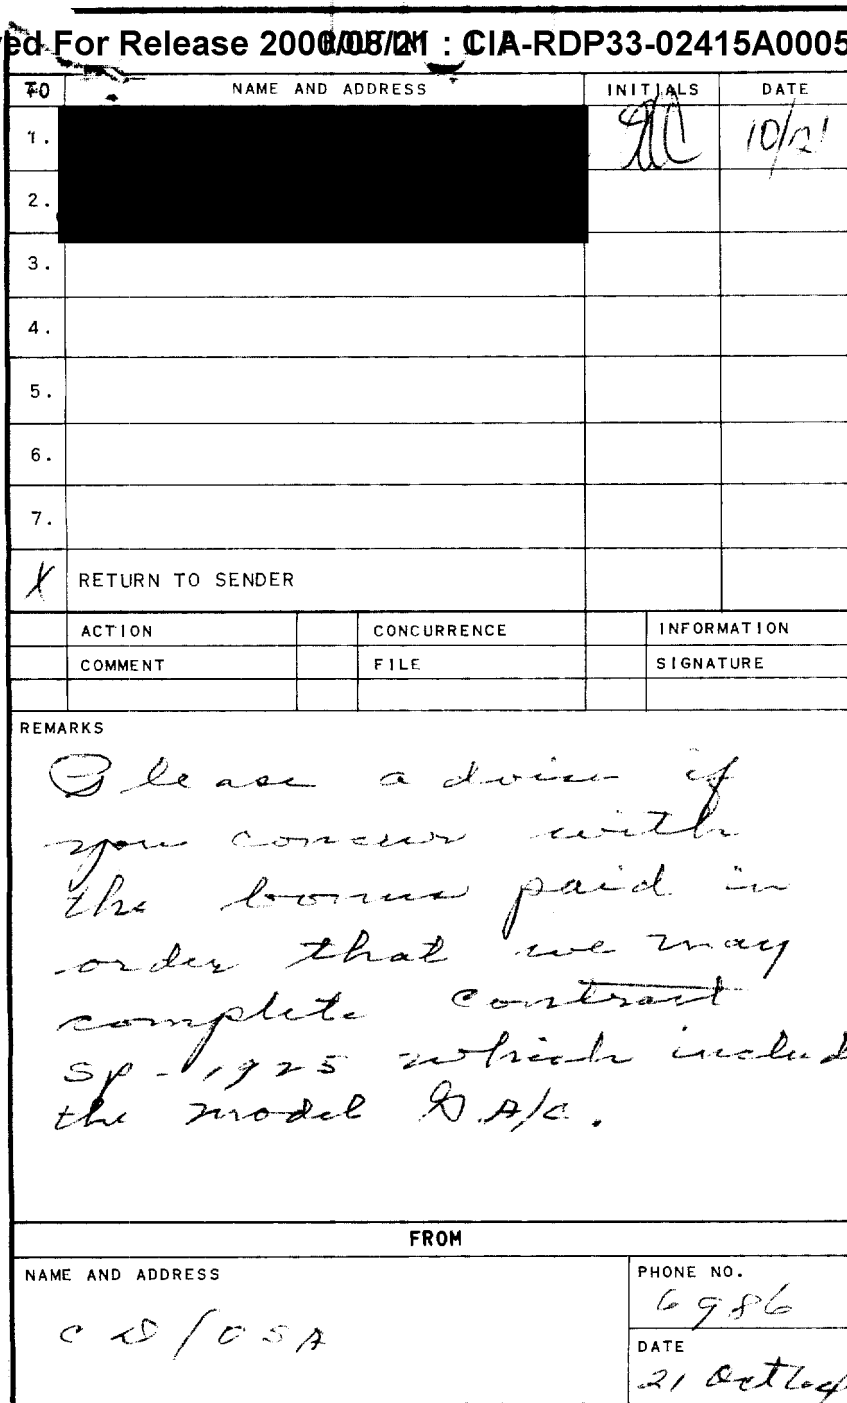 ed For Release 2000/08/21 : CIA-RDP33-02415A0005
TO NAME AND ADDRESS INITIALS DATE
1. 10/21
2.
3.
4.
5.
6.
7.
X RETURN TO SENDER
ACTION CONCURRENCE INFORMATION
COMMENT FILE SIGNATURE
REMARKS
Please advise if
you concur with
the bonus paid in
order that we may
complete contract
SP-1925 which includ
the model G A/C.
FROM
NAME AND ADDRESS PHONE NO.
CD/OSA 6986
DATE
21 Oct 64